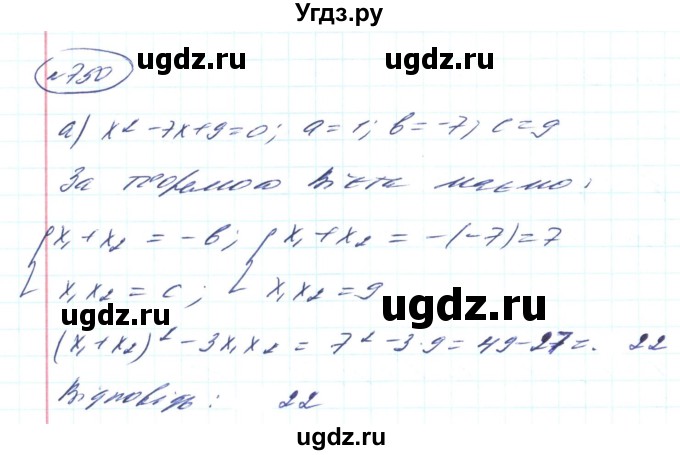 Угдз.ру
№750
ugdz.ru ugdz.ru
а) x² - 7x + 9 = 0; a = 1; b = -7; c = 9
За теоремою Вієта маємо:
{ x₁ + x₂ = -b; { x₁ + x₂ = -(-7) = 7
x₁x₂ = c; x₁x₂ = 9
ugdz.ru ugdz.ru
(x₁ + x₂)² - 3x₁x₂ = 7² - 3·9 = 49 - 27 = 22
Відповідь: 22
ugdz.ru